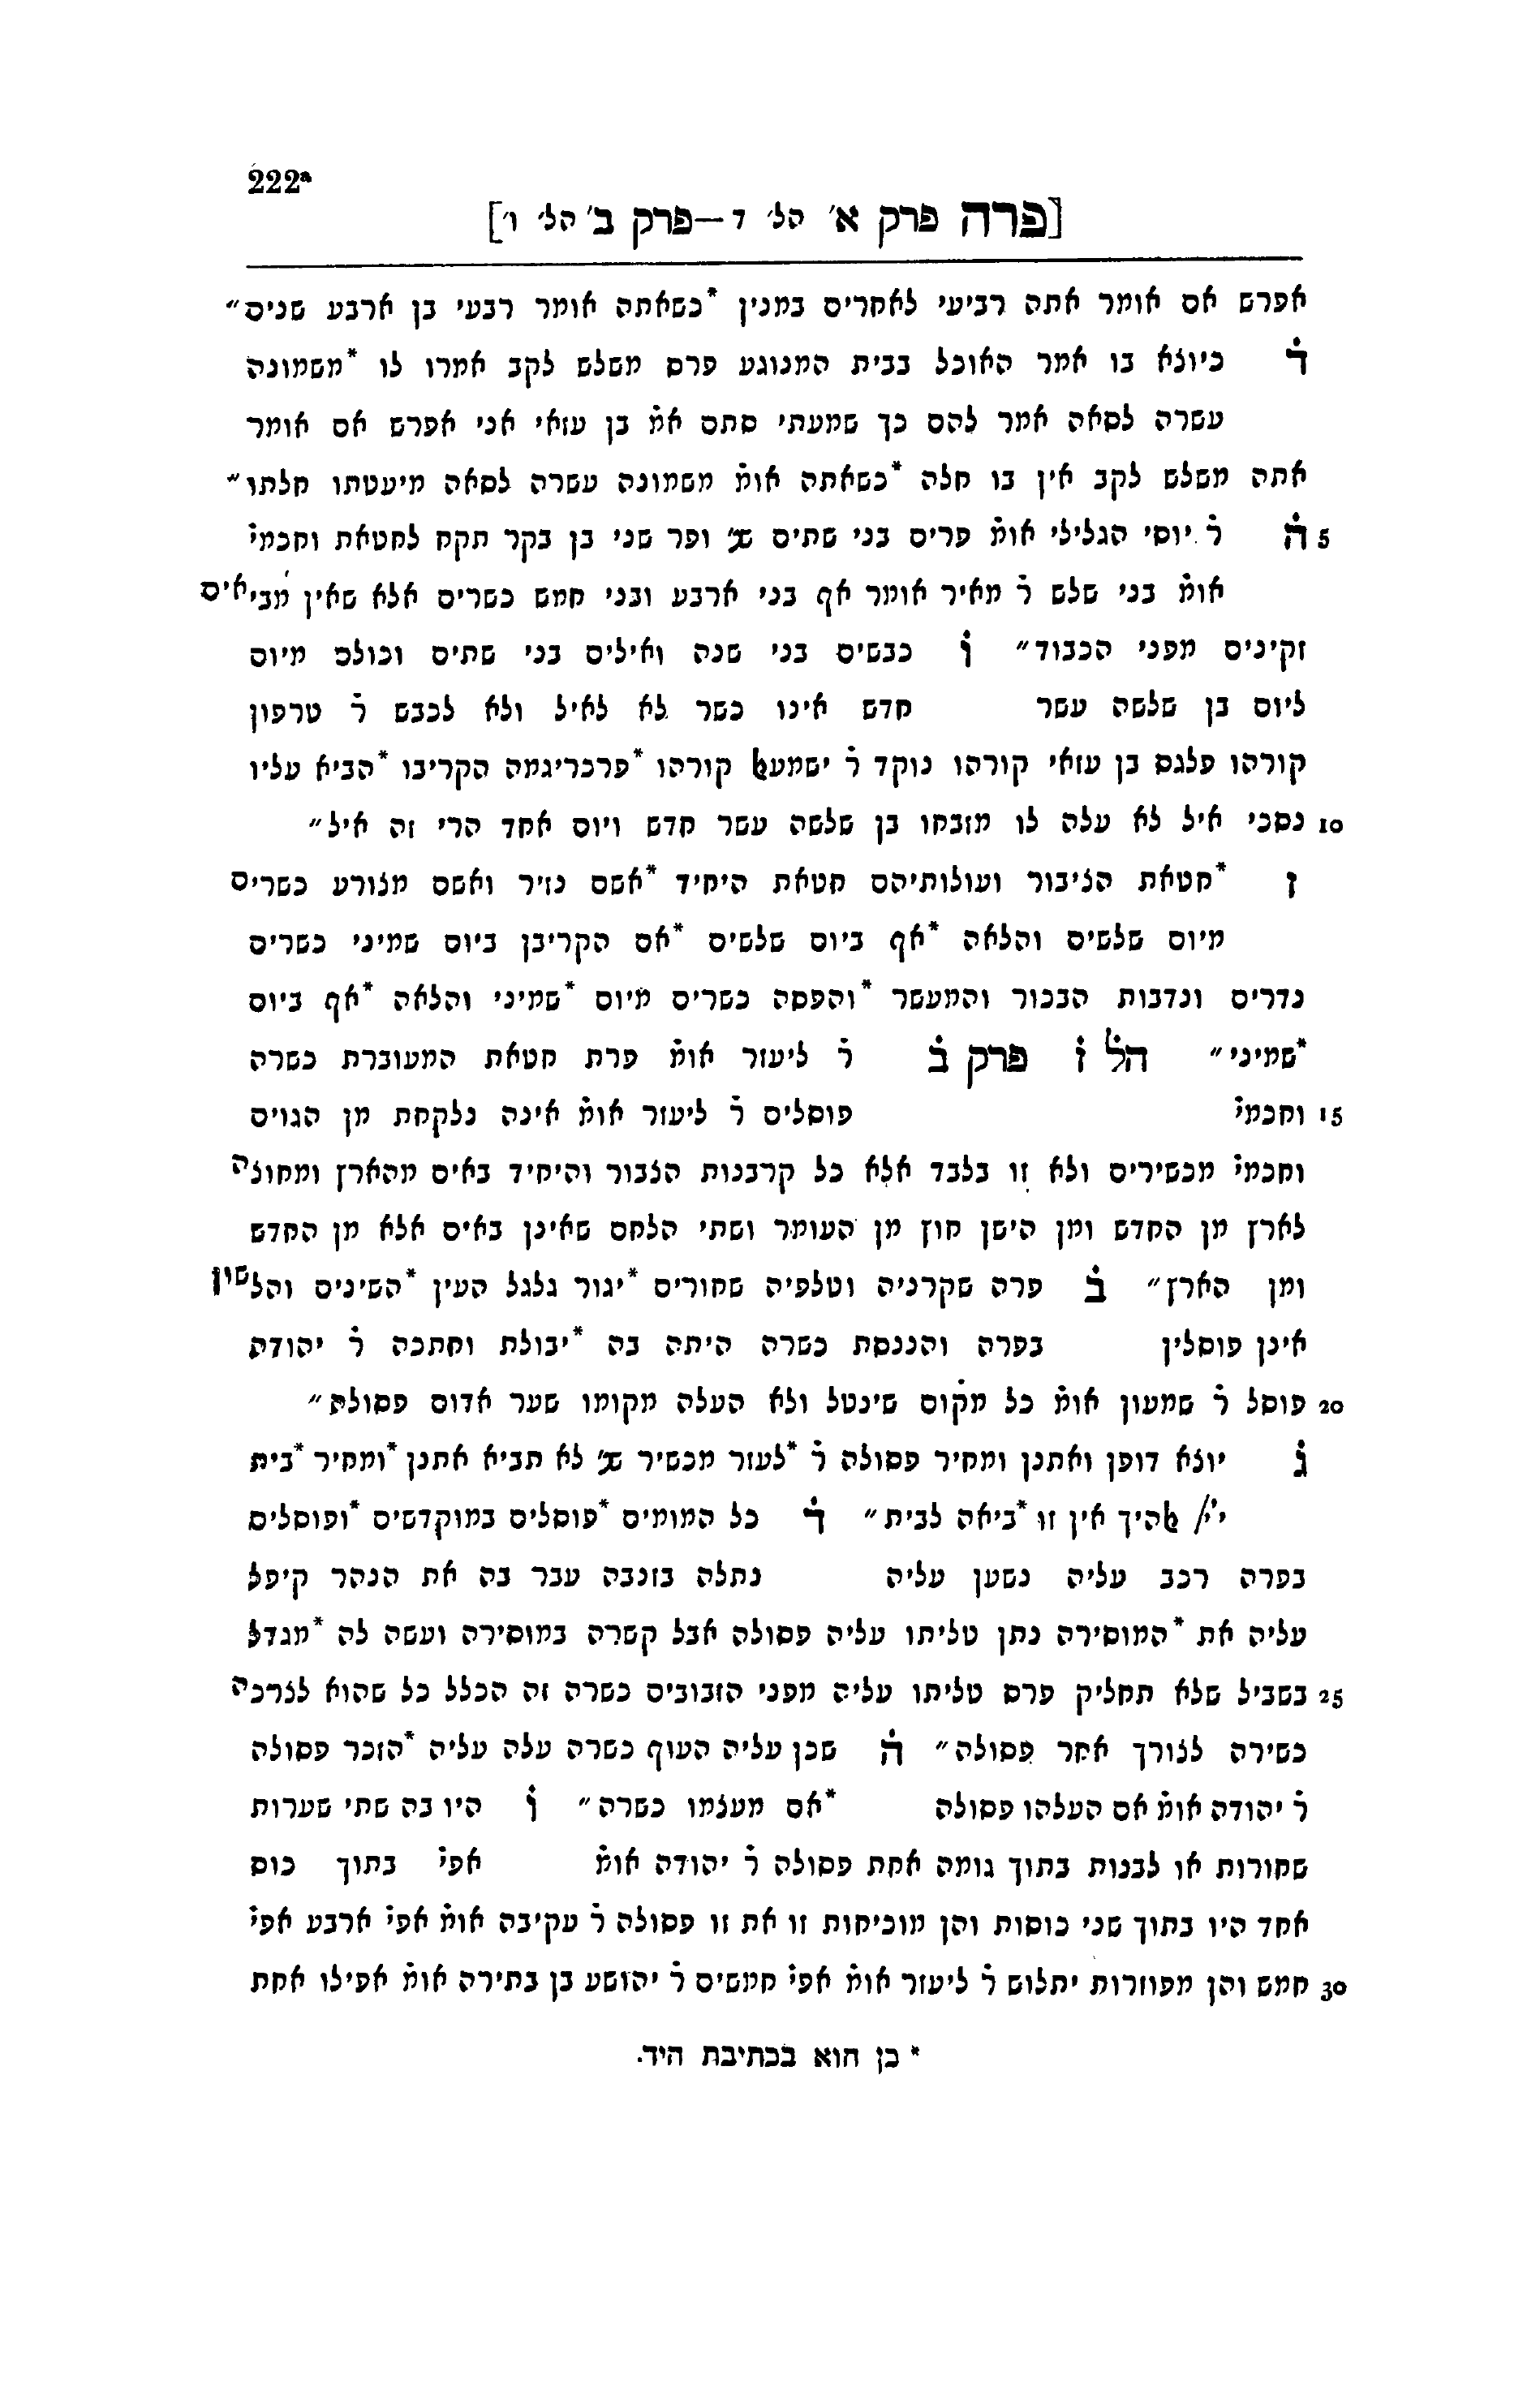 222ª
[פרה פרק א' הל' ד — פרק ב' הל' ו']
אפרש אם אומר אתה רביעי לאחרים במנין *כשאתה אומר רבעי בן ארבע שנים״
ד כיוצא בו אמר האוכל בבית המנוגע פרס משלש לקב אמרו לו *משמונה
עשרה לסאה אמר להם כך שמעתי סתם אמ̇ בן עזאי אני אפרש אם אומר
אתה משלש לקב אין בו חלה *כשאתה אומ̇ משמונה עשרה לסאה מיעטתו חלתו״
5 ה ר̇ יוסי הגלילי אומ̇ פרים בני שתים שנ׳ ופר שני בן בקר תקח לחטאת וחכמי̇
אומ̇ בני שלש ר̇ מאיר אומר אף בני ארבע ובני חמש כשרים אלא שאין מביאים
זקינים מפני הכבוד״ ו כבשים בני שנה ואילים בני שתים וכולם מיום
ליום בן שלשה עשר חדש אינו כשר לא לאיל ולא לכבש ר̇ טרפון
קורהו פלגס בן עזאי קורהו נוקד ר̇ ישמעאל קורהו *פרכריגמה הקריבו *הביא עליו
10 נסכי איל לא עלה לו מזבחו בן שלשה עשר חדש ויום אחד הרי זה איל״
ז *חטאת הציבור ועולותיהם חטאת היחיד *אשם נזיר ואשם מצורע כשרים
מיום שלשים והלאה *אף ביום שלשים *אם הקריבן ביום שמיני כשרים
נדרים ונדבות הבכור והמעשר *והפסה כשרים מיום *שמיני והלאה *אף ביום
*שמיני״ הל̇ ז פרק ב ר̇ ליעזר אומ̇ פרת חטאת המעוברת כשרה
15 וחכמי̇ פוסלים ר̇ ליעזר אומ̇ אינה נלקחת מן הגוים
וחכמי̇ מכשירים ולא זו בלבד אלא כל קרבנות הצבור והיחיד באים מהארץ ומחוצה
לארץ מן החדש ומן הישן חוץ מן העומר ושתי הלחם שאינן באים אלא מן החדש
ומן הארץ״ ב פרה שקרניה וטלפיה שחורים *יגור גלגל העין *השינים והלשון
אינן פוסלין בפרה והננסת כשרה היתה בה *יבולת וחתכה ר̇ יהודה
20 פוסל ר̇ שמעון אומ̇ כל מקום שינטל ולא העלה מקומו שער אדום פסולה״
ג יוצא דופן ואתנן ומחיר פסולה ר̇ *לעזר מכשיר שנ׳ לא תביא אתנן *ומחיר *בית
י׳י׳ אלהיך אין זו *ביאה לבית״ ד כל המומים *פוסלים במוקדשים *ופוסלים
בפרה רכב עליה נשען עליה נתלה בזנבה עבר בה את הנהר קיפל
עליה את *המוסירה נתן טליתו עליה פסולה אבל קשרה במוסירה ועשה לה *מגדל
25 בשביל שלא תחליק פרס טליתו עליה מפני הזבובים כשרה זה הכלל כל שהוא לצרכה
כשירה לצורך אחר פסולה״ ה שכן עליה העוף כשרה עלה עליה *הזכר פסולה
ר̇ יהודה אומ̇ אם העלהו פסולה *אם מעצמו כשרה״ ו היו בה שתי שערות
שחורות או לבנות בתוך גומה אחת פסולה ר̇ יהודה אומ̇ אפי̇ בתוך כוס
אחד היו בתוך שני כוסות והן מוכיחות זו את זו פסולה ר̇ עקיבה אומ̇ אפי̇ ארבע אפי̇
30 חמש והן מפוזרות יתלוש ר̇ ליעזר אומ̇ אפי̇ חמשים ר̇ יהושע בן בתירה אומ̇ אפילו אחת
* כן הוא בכתיבת היד.